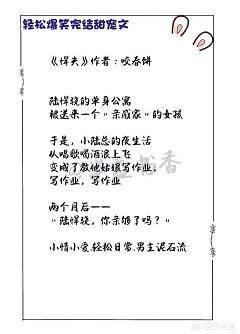 轻松爆笑完结甜宠文
《悍夫》作者：咬春饼
陆悍骁的单身公寓
被送来一个“亲戚家”的女孩
于是，小陆总的夜生活
从唱歌喝酒浪上飞
变成了教他姑娘写作业，
写作业，写作业
两个月后——
“陆悍骁，你亲够了吗？”
小情小爱.轻松日常.男主泥石流
书香